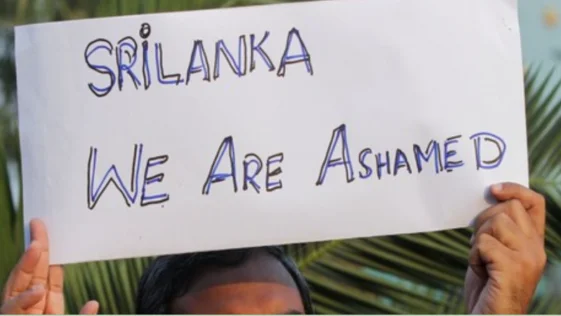 SRILANKA
WE ARE ASHAMED